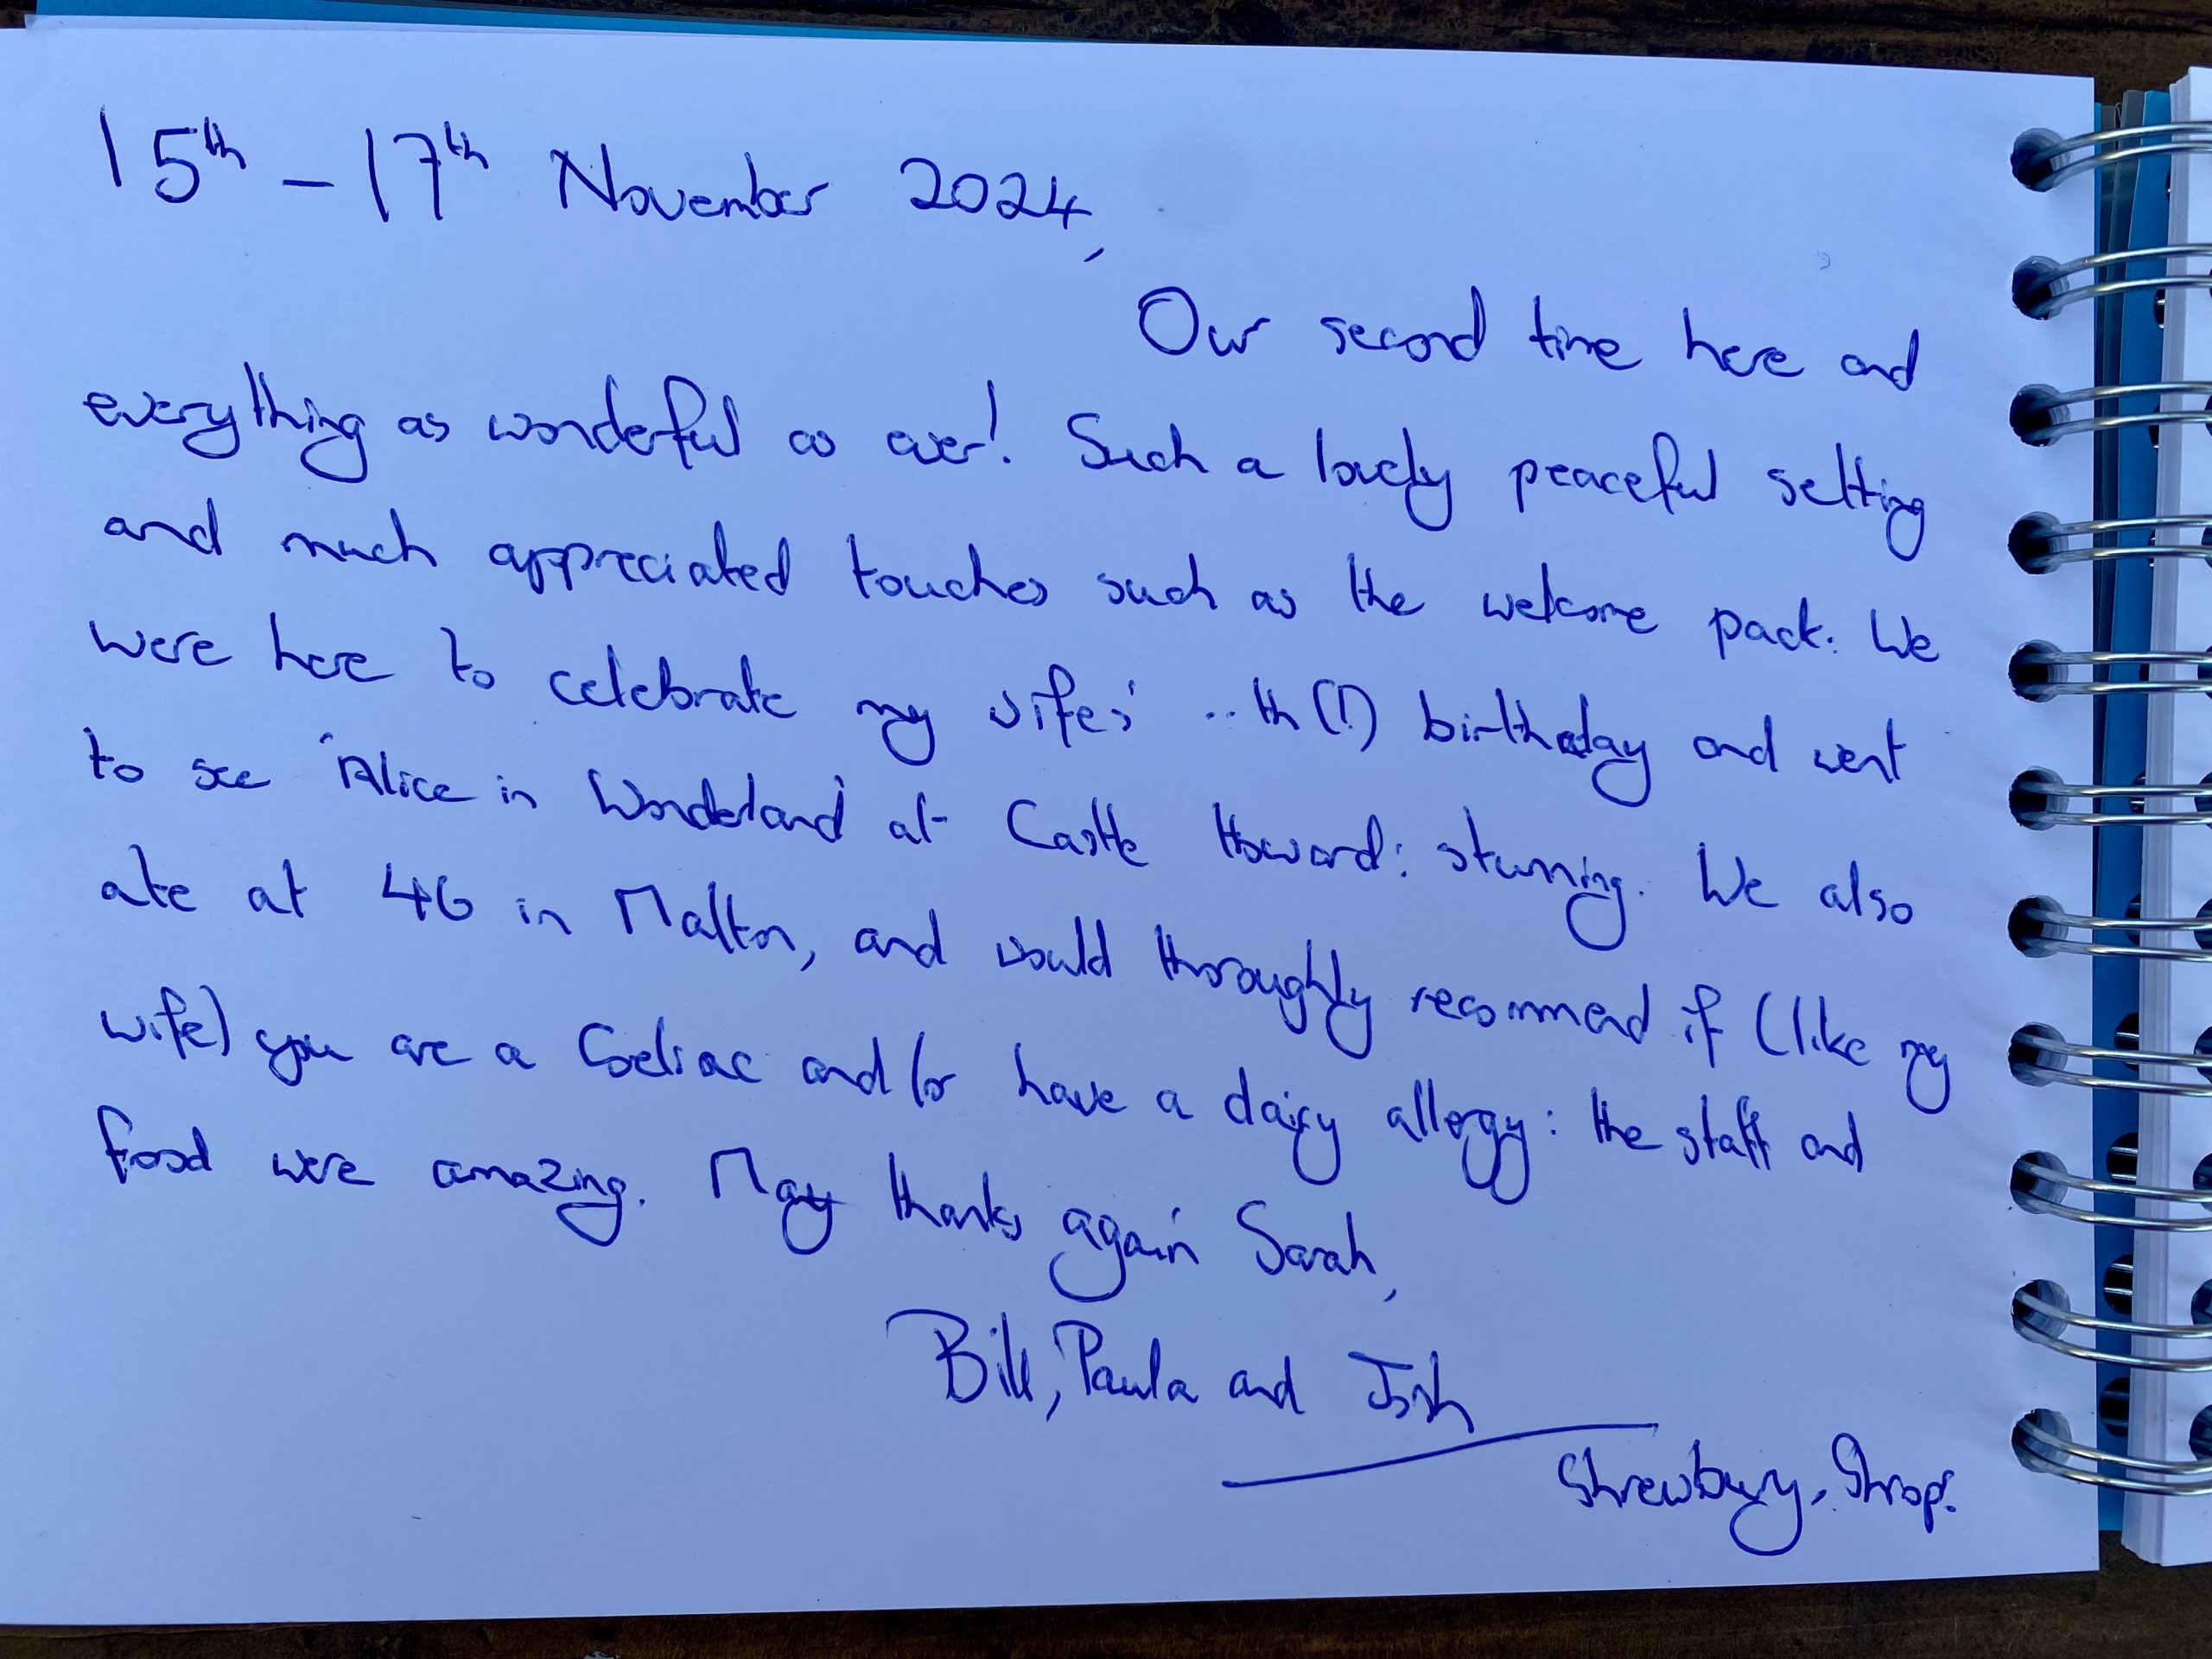 15th – 17th November 2024,
Our second time here and
everything as wonderful as ever! Such a lovely peaceful setting
and much appreciated touches such as the welcome pack. We
were here to celebrate my wifes' ..th (!) birthday and went
to see 'Alice in Wonderland' at Castle Howard: stunning. We also
ate at 46 in Malton, and would thoroughly recommend if (like my
wife) you are a Coeliac and/or have a dairy allergy: the staff and
food were amazing. Many thanks again Sarah,
Bill, Paula and Josh
Shrewbury, Shrop.